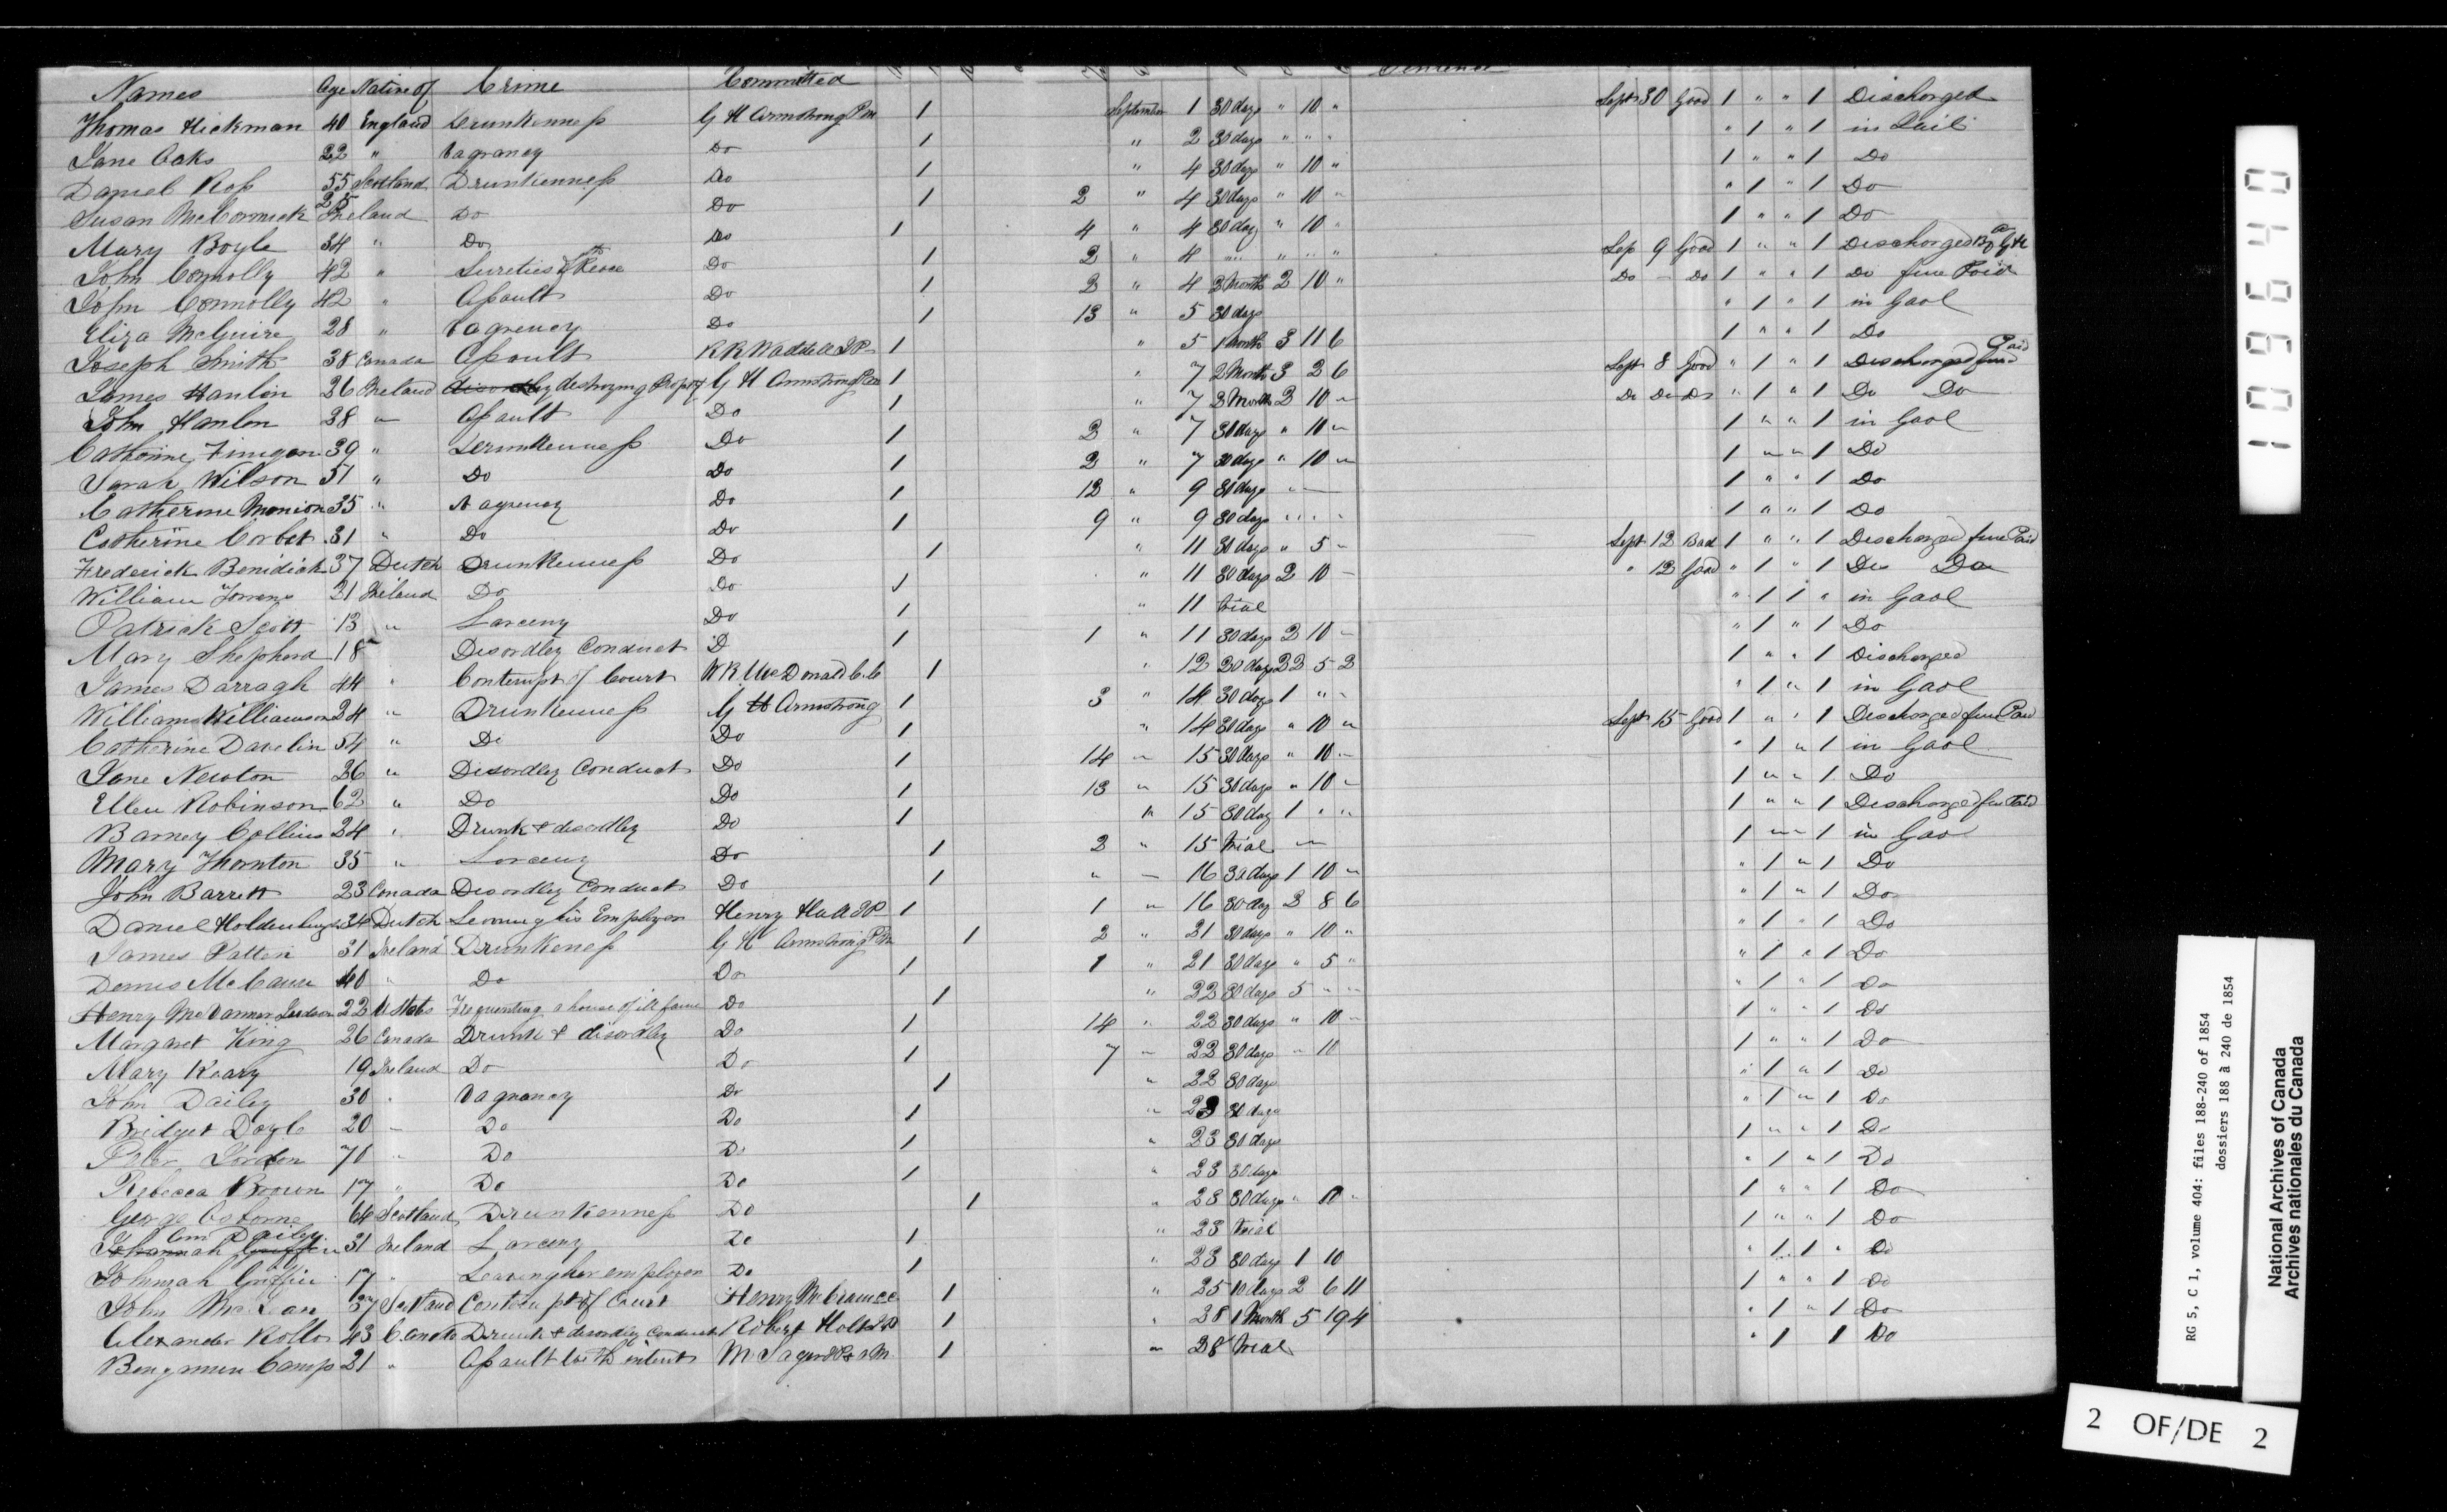 Names Age Native of Crime Committed Sentence
Thomas Hickman 40 England Drunkenness G H Armstrong P.M 1 September 1 30 days " 10 " Sept 30 Good 1 " " 1 Discharged
Jane Oaks 22 " Vagrancy Do 1 " 2 30 days " " " " 1 " 1 in Gail
Daniel Ross 55 Scotland Drunkenness Do 1 " 4 30 days " 10 " 1 " " 1 Do
Susan McCormick 25 Ireland Do Do 1 2 " 4 30 days " 10 " " 1 " 1 Do
Mary Boyle 34 " Do Do 1 4 " 4 30 day " 10 " 1 " " 1 Do
John Connolly 42 " Sureties of the Peace Do 1 2 " 4 " " " " Sep 9 Good 1 " " 1 Discharged By G H a
John Connolly 42 " Assault Do 1 2 " 4 2 Month 2 10 " Do - Do 1 " " 1 Do fine Paid
Eliza McGuire 28 " Vagrency Do 1 13 " 5 30 days " 1 " 1 in Gaol
Joseph Smith 38 Canada Assault R R Waddell J P 1 " 5 1 Month 3 11 6 1 " " 1 Do
James Hanlon 26 Ireland destroying Property G H Armstrong 1 " 7 2 Month 3 2 6 Sept 8 Good " 1 " 1 Discharged fine Paid
John Hanlon 38 " Assault Do 1 " 7 2 Month 2 10 " Do Do Do " 1 " 1 Do Do
Catherine Finigan 39 " Drunkenness Do 1 2 " 7 30 days " 10 " 1 " " 1 in Gaol
Sarah Wilson 51 " Do Do 1 2 " 7 30 days " 10 " 1 " " 1 Do
Catherine Monion 35 " Vagrency Do 1 12 " 9 30 days " 1 " " 1 Do
Catherine Corbet 31 " Do Do 1 9 " 9 30 days " " " 1 " " 1 Do
Frederick Benidick 37 Dutch Drunkenness Do 1 " 11 30 days " 5 " Sept 12 Bad 1 " " 1 Discharged fine Paid
William 21 Ireland Do Do 1 " 11 30 days 2 10 - " 12 Good " 1 " 1 Do Do
Patrick Scott 13 " Larceny Do 1 " 11 trial " 1 1 " in Gaol
Mary Shepherd 18 " Disordley Conduct D 1 1 " 11 30 days 2 10 - " 1 " 1 Do
James Darragh 44 " Contempt of Court W R McDonald C.C 1 " 12 20 days 22 5 2 1 " " 1 Discharged
William Williamson 24 " Drunkenness G H Armstrong 1 3 " 14 30 days 1 " " " 1 " 1 in Gaol
Catherine Davelin 54 " Do Do 1 " 14 30 days " 10 " Sept 15 Good 1 " " 1 Discharged fine Paid
Jane Newton 26 " Disordley Conduct Do 1 14 " 15 30 days " 10 " " 1 " 1 in Gaol
Ellen Robinson 62 " Do Do 1 13 " 15 30 days " 10 " 1 " " 1 Do
Barney Collins 24 " Drunk & disordley Do 1 " 15 30 day 1 " " 1 " " 1 Discharged fine Paid
Mary Thornton 35 " Larceny Do 1 2 " 15 trial " 1 " " 1 in Gao
John Barrett 23 Canada Disordley Conduct Do 1 " " 16 30 days 1 10 " " 1 " 1 Do
Daniel 34 Dutch Leaving his Employer Henry Hall J P 1 1 " 16 30 day 2 8 6 " 1 " 1 Do
James Patton 31 Ireland Drunkeness G H Armstrong P M 1 2 " 21 30 days " 10 " " 1 " 1 Do
Dennis McCause 40 " Do Do 1 1 " 21 30 days " 5 " " 1 " 1 Do
Henry 22 U States Frequenting a house of ill fame Do 1 " 22 30 days 5 " " " 1 " 1 Do
Margaret King 26 Canada Drunk & disordley Do 1 14 " 22 30 days " 10 " 1 " " 1 Do
Mary Keary 19 Ireland Do Do 1 7 " 22 30 days " 10 1 " " 1 Do
John Dailey 30 " Vagrancy Do 1 " 22 30 days " 1 " 1 Do
Bridget Doyle 20 " Do Do 1 " 23 30 days " 1 " 1 Do
Peter Jordon 70 " Do Do 1 " 23 30 days 1 " " 1 Do
Rebecca Brown 17 " Do Do 1 " 23 30 days " 1 " 1 Do
George Osborne 64 Scotland Drunkenness Do 1 " 23 30 days " 10 " 1 " " 1 Do
Ann Dailey
Johannah Griffin 31 Ireland Larceny Do 1 " 23 trial 1 " " 1 Do
Johnnah Griffin 17 " Leaving her employer Do 1 " 23 30 days 1 10 " 1 1 " Do
John McLean 37 Scotland Contempt of Court Henry 1 " 25 10 days 2 6 11 1 " " 1 Do
Alexander Rollo 43 Canada Drunk & disordley Conduct Robert Holt J P 1 " 28 1 Month 5 19 4 " 1 " 1 Do
Bengmun Camp 21 " Assault with intent 1 " 28 trial " 1 1 Do
109640
RG 5, C 1, volume 404: files 188-240 of 1854
dossiers 188 à 240 de 1854
National Archives of Canada
Archives nationales du Canada
2 OF/DE 2